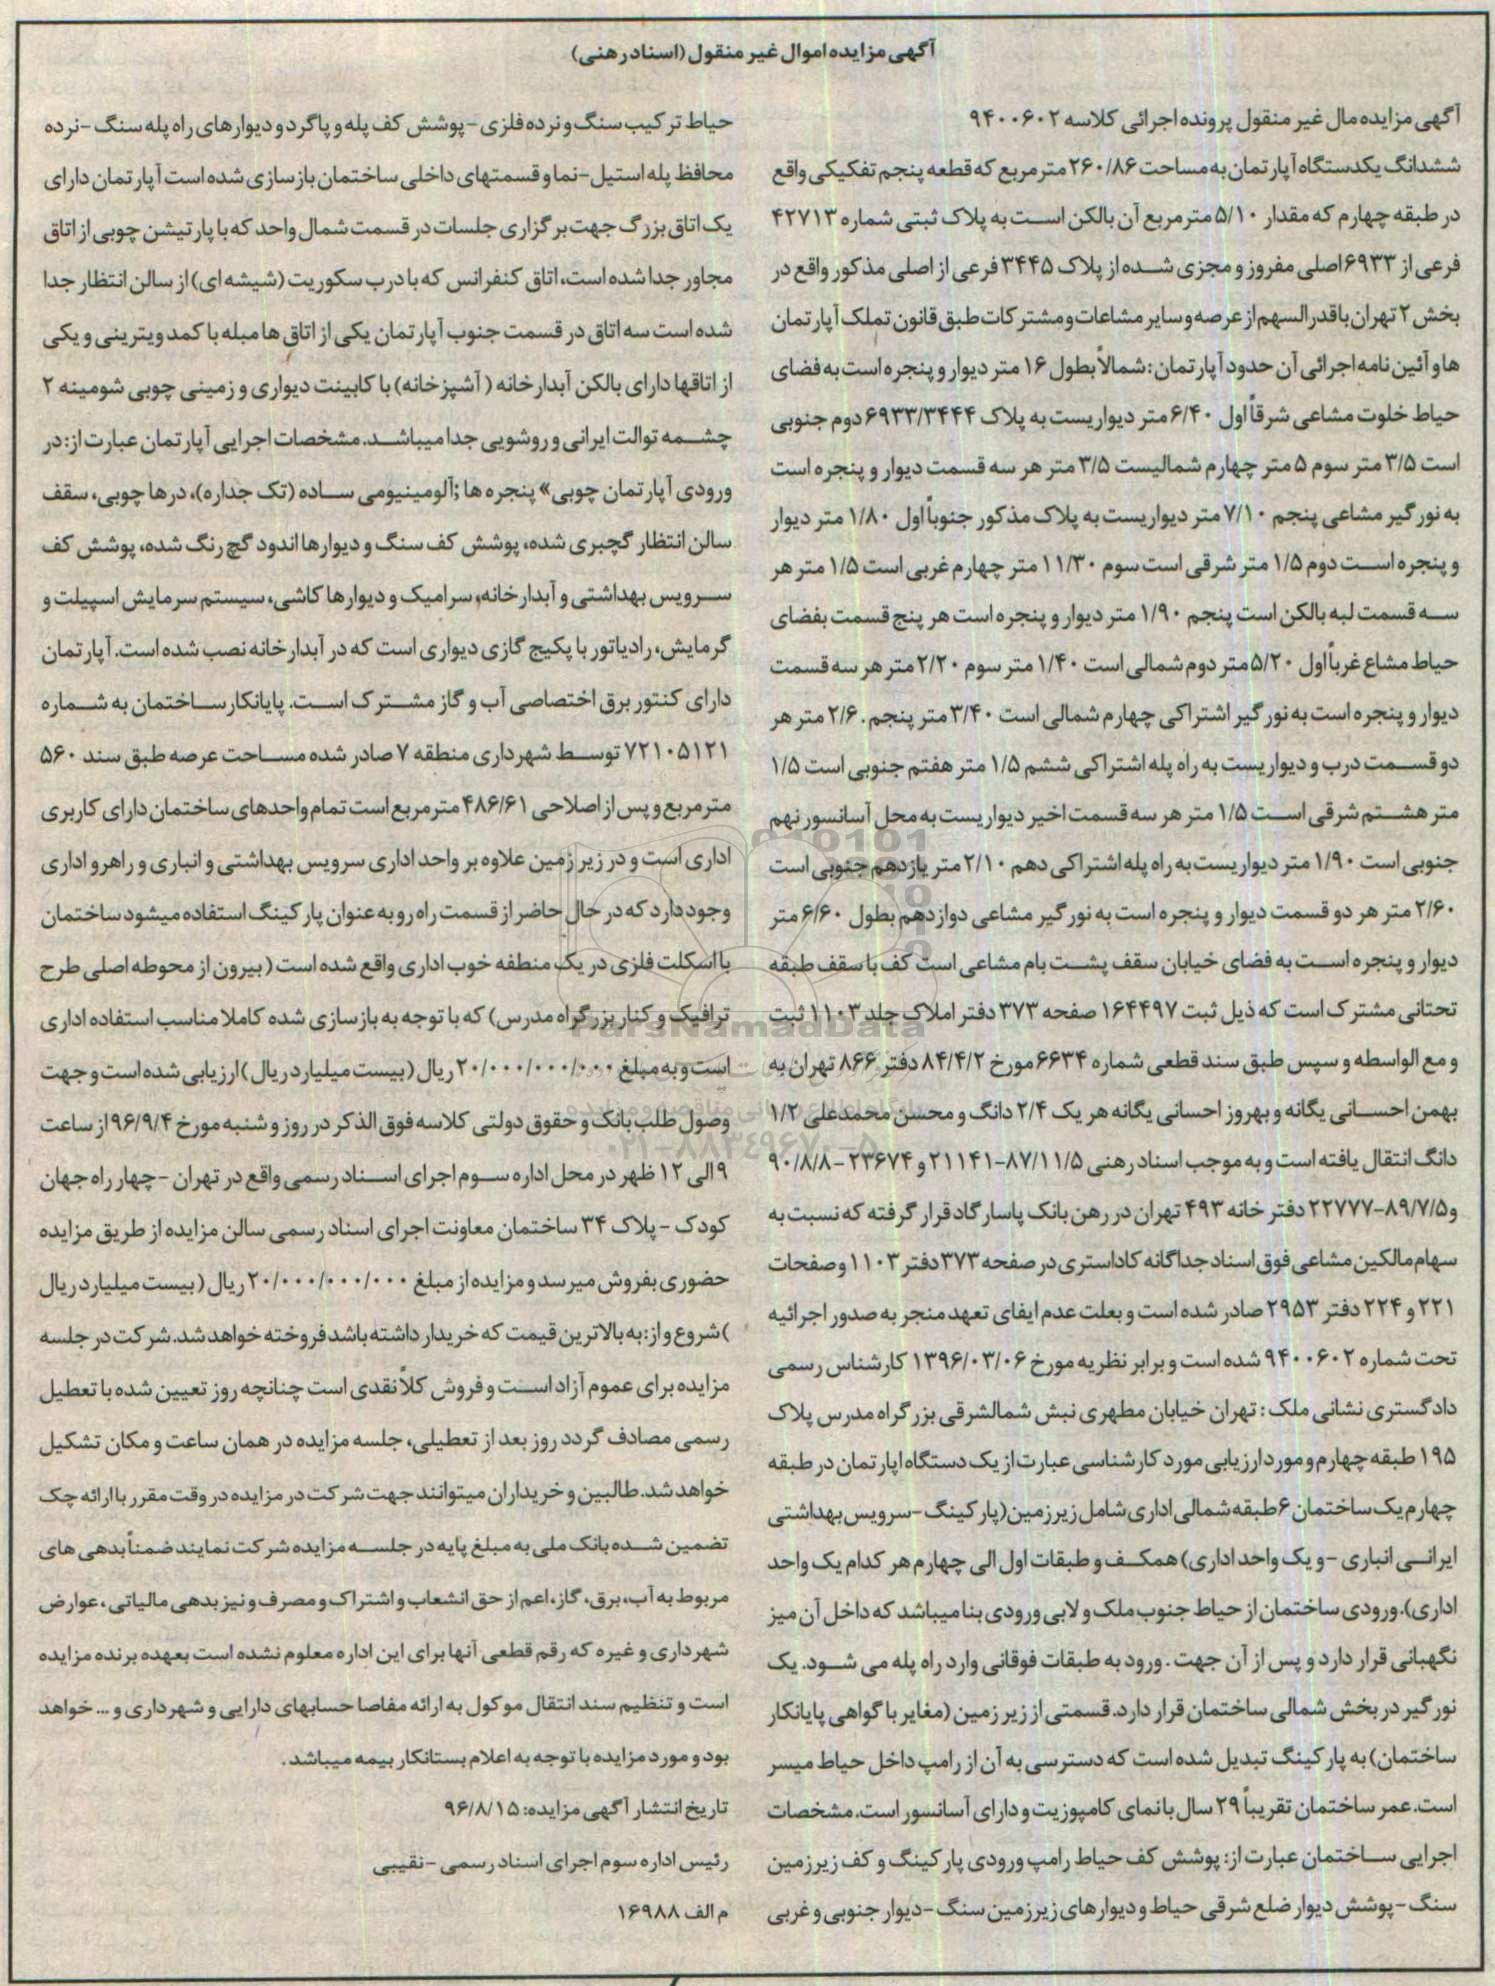 آگهی مزایده اموال غیر منقول (اسناد رهنی)
آگهی مزایده مال غیر منقول پرونده اجرائی کلاسه ۹۴۰۰۶۰۲
ششدانگ یکدستگاه آپارتمان به مساحت ۲۶۰/۸۶ مترمربع که قطعه پنجم تفکیکی واقع
در طبقه چهارم که مقدار ۵/۱۰ مترمربع آن بالکن است به پلاک ثبتی شماره ۴۲۷۱۳
فرعی از ۶۹۳۳ اصلی مفروز و مجزی شده از پلاک ۳۴۴۵ فرعی از اصلی مذکور واقع در
بخش ۲ تهران باقدرالسهم از عرصه و سایر مشاعات و مشترکات طبق قانون تملک آپارتمان
ها و آئین نامه اجرائی آن حدود آپارتمان: شمالاً بطول ۱۶ متر دیوار و پنجره است به فضای
حیاط خلوت مشاعی شرقاً اول ۶/۴۰ متر دیواریست به پلاک ۶۹۳۳/۳۴۴۴ دوم جنوبی
است ۳/۵ متر سوم ۵ متر چهارم شمالیست ۳/۵ متر هر سه قسمت دیوار و پنجره است
به نورگیر مشاعی پنجم ۷/۱۰ متر دیواریست به پلاک مذکور جنوباً اول ۱/۸۰ متر دیوار
و پنجره است دوم ۱/۵ متر شرقی است سوم ۱۱/۳۰ متر چهارم غربی است ۱/۵ متر هر
سه قسمت لبه بالکن است پنجم ۱/۹۰ متر دیوار و پنجره است هر پنج قسمت بفضای
حیاط مشاع غرباً اول ۵/۲۰ متر دوم شمالی است ۱/۴۰ متر سوم ۲/۲۰ متر هر سه قسمت
دیوار و پنجره است به نورگیر اشتراکی چهارم شمالی است ۳/۴۰ متر پنجم ۲/۶۰ متر هر
دو قسمت درب و دیواریست به راه پله اشتراکی ششم ۱/۵ متر هفتم جنوبی است ۱/۵
متر هشتم شرقی است ۱/۵ متر هر سه قسمت اخیر دیواریست به محل آسانسور نهم
جنوبی است ۱/۹۰ متر دیواریست به راه پله اشتراکی دهم ۲/۱۰ متر یازدهم جنوبی است
۲/۶۰ متر هر دو قسمت دیوار و پنجره است به نورگیر مشاعی دوازدهم بطول ۶/۶۰ متر
دیوار و پنجره است به فضای خیابان سقف پشت بام مشاعی است کف با سقف طبقه
تحتانی مشترک است که ذیل ثبت ۱۶۴۴۹۷ صفحه ۳۷۳ دفتر املاک جلد ۱۱۰۳ ثبت
و مع الواسطه و سپس طبق سند قطعی شماره ۶۶۳۴ مورخ ۸۴/۴/۲ دفتر ۸۶۶ تهران به
بهمن احسانی یگانه و بهروز احسانی یگانه هر یک ۲/۴ دانگ و محسن محمدعلی ۱/۲
دانگ انتقال یافته است و به موجب اسناد رهنی ۸۷/۱۱/۵-۲۱۱۴۱ و ۲۳۶۷۴-۹۰/۸/۸
و ۸۹/۷/۵-۲۲۷۷۷ دفتر خانه ۴۹۳ تهران در رهن بانک پاسارگاد قرار گرفته که نسبت به
سهام مالکین مشاعی فوق اسناد جداگانه کاداستری در صفحه ۳۷۳ دفتر ۱۱۰۳ و صفحات
۲۲۱ و ۲۲۴ دفتر ۲۹۵۳ صادر شده است و بعلت عدم ایفای تعهد منجر به صدور اجرائیه
تحت شماره ۹۴۰۰۶۰۲ شده است و برابر نظریه مورخ ۱۳۹۶/۰۳/۰۶ کارشناس رسمی
دادگستری نشانی ملک: تهران خیابان مطهری نبش شمالشرقی بزرگراه مدرس پلاک
۱۹۵ طبقه چهارم و مورد ارزیابی مورد کارشناسی عبارت از یک دستگاه اپارتمان در طبقه
چهارم یک ساختمان ۶ طبقه شمالی اداری شامل زیرزمین (پارکینگ -سرویس بهداشتی
ایرانی انباری -و یک واحد اداری) همکف و طبقات اول الی چهارم هر کدام یک واحد
اداری). ورودی ساختمان از حیاط جنوب ملک و لابی ورودی بنا میباشد که داخل آن میز
نگهبانی قرار دارد و پس از آن جهت . ورود به طبقات فوقانی وارد راه پله می شود. یک
نورگیر در بخش شمالی ساختمان قرار دارد. قسمتی از زیر زمین (مغایر با گواهی پایانکار
ساختمان) به پارکینگ تبدیل شده است که دسترسی به آن از رامپ داخل حیاط میسر
است. عمر ساختمان تقریباً ۲۹ سال با نمای کامپوزیت و دارای آسانسور است. مشخصات
اجرایی ساختمان عبارت از: پوشش کف حیاط رامپ ورودی پارکینگ و کف زیرزمین
سنگ -پوشش دیوار ضلع شرقی حیاط و دیوارهای زیرزمین سنگ -دیوار جنوبی و غربی
حیاط ترکیب سنگ و نرده فلزی -پوشش کف پله و پاگرد و دیوارهای راه پله سنگ -نرده
محافظ پله استیل-نما و قسمتهای داخلی ساختمان بازسازی شده است آپارتمان دارای
یک اتاق بزرگ جهت برگزاری جلسات در قسمت شمال واحد که با پارتیشن چوبی از اتاق
مجاور جدا شده است، اتاق کنفرانس که با درب سکوریت (شیشه ای) از سالن انتظار جدا
شده است سه اتاق در قسمت جنوب آپارتمان یکی از اتاق ها مبله با کمد ویترینی و یکی
از اتاقها دارای بالکن آبدارخانه (آشپزخانه) با کابینت دیواری و زمینی چوبی شومینه ۲
چشمه توالت ایرانی و روشویی جدا میباشد. مشخصات اجرایی آپارتمان عبارت از: در
ورودی آپارتمان چوبی» پنجره ها ;آلومینیومی ساده (تک جداره)، درها چوبی، سقف
سالن انتظار گچبری شده، پوشش کف سنگ و دیوارها اندود گچ رنگ شده، پوشش کف
سرویس بهداشتی و آبدارخانه، سرامیک و دیوارها کاشی، سیستم سرمایش اسپیلت و
گرمایش، رادیاتور با پکیج گازی دیواری است که در آبدارخانه نصب شده است. آپارتمان
دارای کنتور برق اختصاصی آب و گاز مشترک است. پایانکار ساختمان به شماره
۷۲۱۰۵۱۲۱ توسط شهرداری منطقه ۷ صادر شده مساحت عرصه طبق سند ۵۶۰
مترمربع و پس از اصلاحی ۴۸۶/۶۱ مترمربع است تمام واحدهای ساختمان دارای کاربری
اداری است و در زیر زمین علاوه بر واحد اداری سرویس بهداشتی و انباری و راهرو اداری
وجود دارد که در حال حاضر از قسمت راه رو به عنوان پارکینگ استفاده میشود ساختمان
با اسکلت فلزی در یک منطقه خوب اداری واقع شده است (بیرون از محوطه اصلی طرح
ترافیک و کنار بزرگراه مدرس) که با توجه به بازسازی شده کاملا مناسب استفاده اداری
است و به مبلغ ۲۰/۰۰۰/۰۰۰/۰۰۰ ریال (بیست میلیارد ریال) ارزیابی شده است و جهت
وصول طلب بانک و حقوق دولتی کلاسه فوق الذکر در روز و شنبه مورخ ۹۶/۹/۴ از ساعت
۹ الی ۱۲ ظهر در محل اداره سوم اجرای اسناد رسمی واقع در تهران -چهار راه جهان
کودک - پلاک ۳۴ ساختمان معاونت اجرای اسناد رسمی سالن مزایده از طریق مزایده
حضوری بفروش میرسد و مزایده از مبلغ ۲۰/۰۰۰/۰۰۰/۰۰۰ ریال (بیست میلیارد ریال
) شروع و از: به بالاترین قیمت که خریدار داشته باشد فروخته خواهد شد. شرکت در جلسه
مزایده برای عموم آزاد است و فروش کلاً نقدی است چنانچه روز تعیین شده با تعطیل
رسمی مصادف گردد روز بعد از تعطیلی، جلسه مزایده در همان ساعت و مکان تشکیل
خواهد شد. طالبین و خریداران میتوانند جهت شرکت در مزایده در وقت مقرر با ارائه چک
تضمین شده بانک ملی به مبلغ پایه در جلسه مزایده شرکت نمایند ضمناً بدهی های
مربوط به آب، برق، گاز، اعم از حق انشعاب و اشتراک و مصرف و نیز بدهی مالیاتی ، عوارض
شهرداری و غیره که رقم قطعی آنها برای این اداره معلوم نشده است بعهده برنده مزایده
است و تنظیم سند انتقال موکول به ارائه مفاصا حسابهای دارایی و شهرداری و ... خواهد
بود و مورد مزایده با توجه به اعلام بستانکار بیمه میباشد.
تاریخ انتشار آگهی مزایده: ۹۶/۸/۱۵
رئیس اداره سوم اجرای اسناد رسمی -نقیبی
م الف ۱۶۹۸۸
ParsNamadData
۰۲۱-۸۸۳۴۹۶۷۰-۵